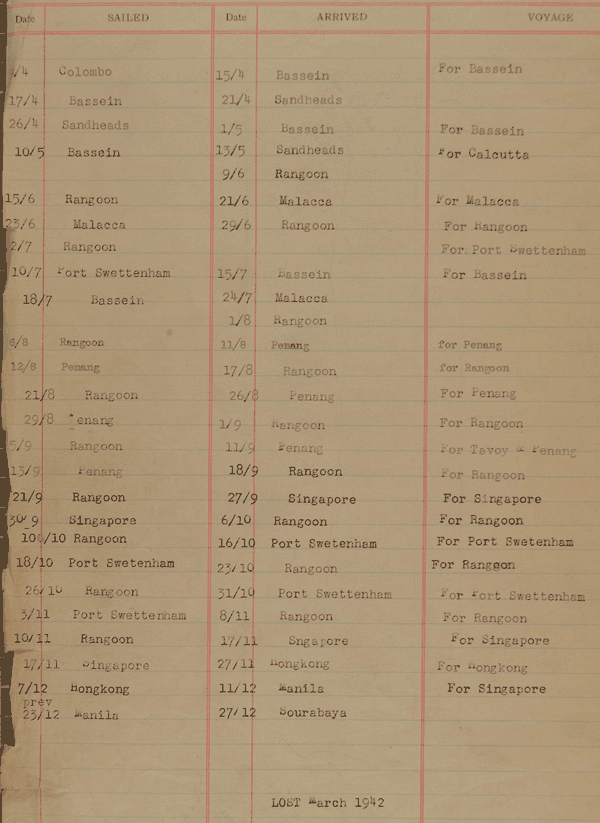 Date SAILED Date ARRIVED VOYAGE
/4 Colombo 15/4 Bassein For Bassein
17/4 Bassein 21/4 Sandheads
26/4 Sandheads 1/5 Bassein For Bassein
10/5 Bassein 13/5 Sandheads For Calcutta
9/6 Rangoon
15/6 Rangoon 21/6 Malacca For Malacca
23/6 Malacca 29/6 Rangoon For Rangoon
2/7 Rangoon For Port Swettenham
10/7 Port Swettenham 15/7 Bassein For Bassein
18/7 Bassein 24/7 Malacca
1/8 Rangoon
8/8 Rangoon 11/8 Penang for Penang
12/8 Penang 17/8 Rangoon for Rangoon
21/8 Rangoon 26/8 Penang For Penang
29/8 Penang 1/9 Rangoon For Rangoon
5/9 Rangoon 11/9 Penang For Tavoy & Penang
13/9 Penang 18/9 Rangoon For Rangoon
21/9 Rangoon 27/9 Singapore For Singapore
30/9 Singapore 6/10 Rangoon For Rangoon
/10 Rangoon 16/10 Port Swetenham For Port Swetenham
18/10 Port Swetenham 23/10 Rangoon For Rangoon
26/10 Rangoon 31/10 Port Swettenham For Port Swettenham
3/11 Port Swettenham 8/11 Rangoon For Rangoon
10/11 Rangoon 17/11 Sngapore For Singapore
17/11 Singapore 27/11 Hongkong For Hongkong
7/12 Hongkong 11/12 Manila For Singapore
prev
23/12 Manila 27/12 Sourabaya
LOST March 1942